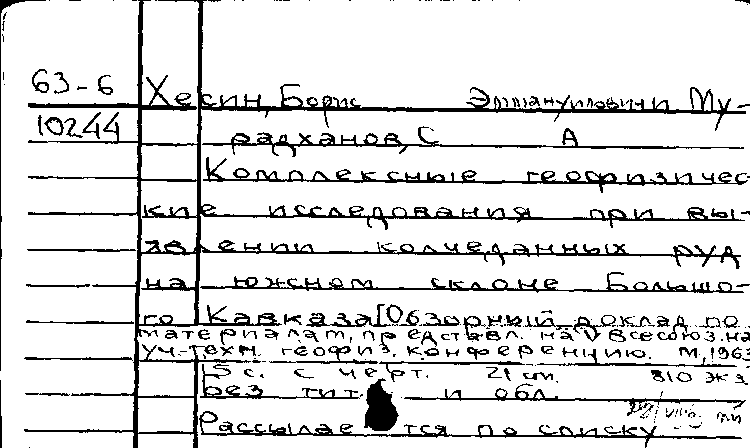 63-6 Хесин, Борис Эммануилович и Му-
10244 радханов, С А
Комплексные геофизичес
кие исследования при вы-
явлении колчеданных руд
на южном склоне Большо-
го Кавказа [Обзорный доклад по
материалам, представл. на V Всесоюз. на
уч.-техн. геофиз. конференцию. М, 1963
15 с. с черт. 21 см. 810 экз
Без тит. и обл.
Рассылается по списку